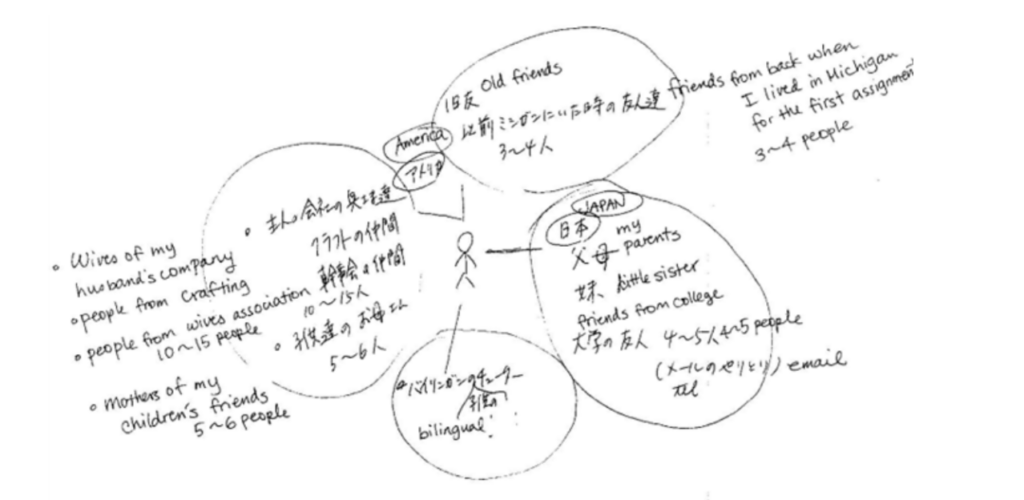 旧友 Old friends
以前ミシガンにいた時の友人達 friends from back when
I lived in Michigan
for the first assignment
3〜4人
3〜4 people
America
アメリカ
主人会社の奥さま達
クラフトの仲間
幹事会の仲間
10〜15人
子供達のお母さん
5〜6人
• Wives of my
husband's company
• people from crafting
• people from wives association
10〜15 people
• Mothers of my
children's friends
5〜6 people
JAPAN
日本
my
父母 parents
妹 little sister
friends from college
大学の友人 4〜5人 4〜5 people
(メールのやりとり) email
tel
バイリンガルのチューター
子供の
bilingual